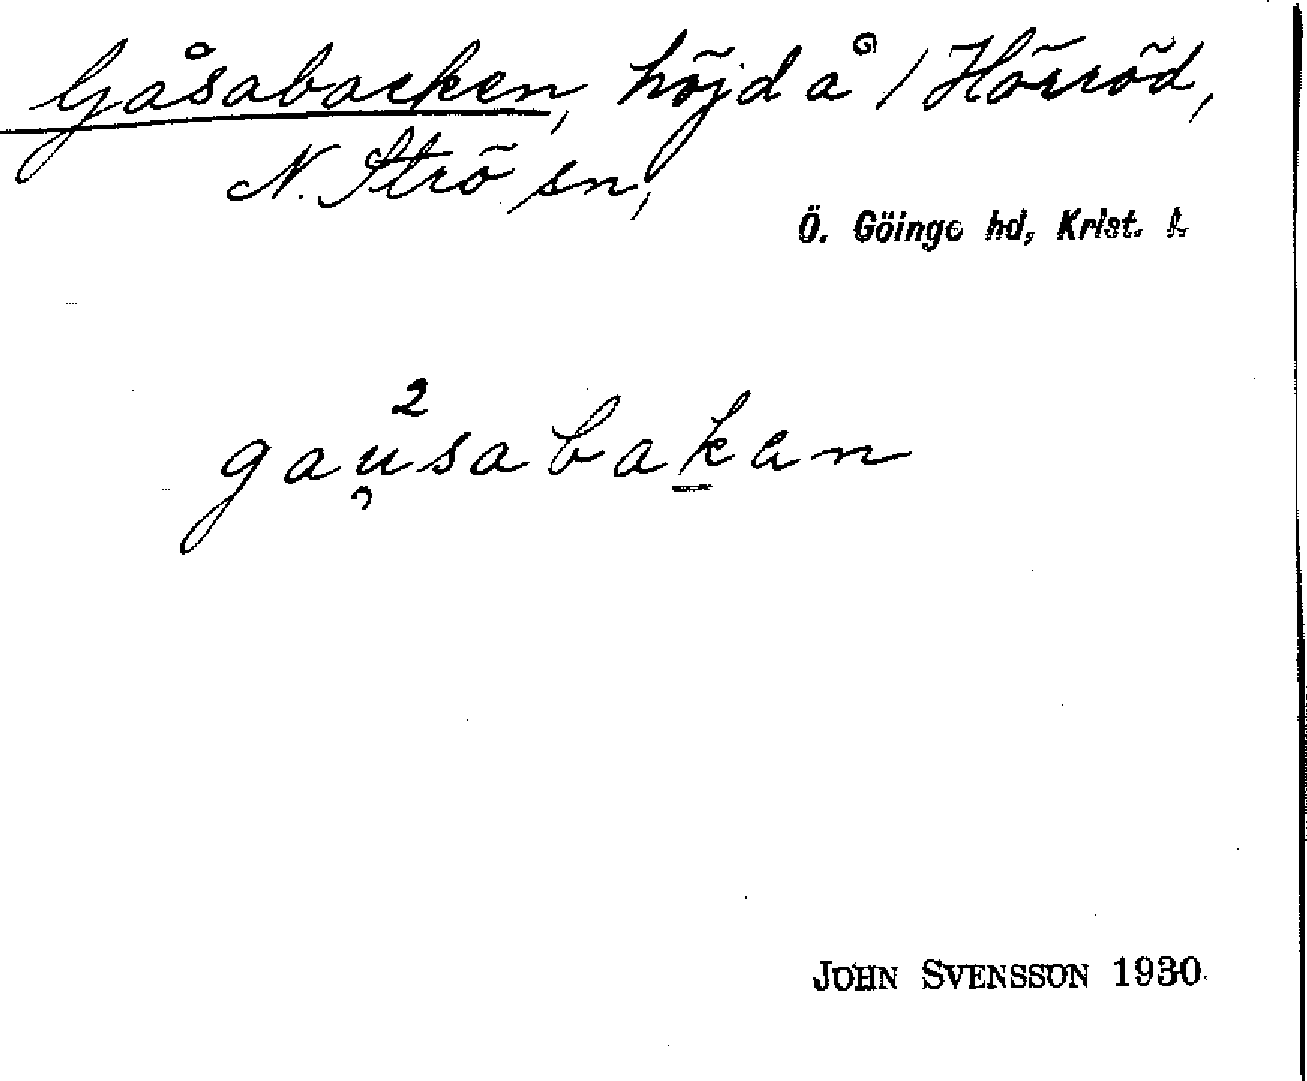 Gåsabacken, höjd å / Hörröd,
N. Strö sn,
Ö. Göinge hd, Krist. l.
2
gau̯sabak̲an
JOHN SVENSSON 1930.